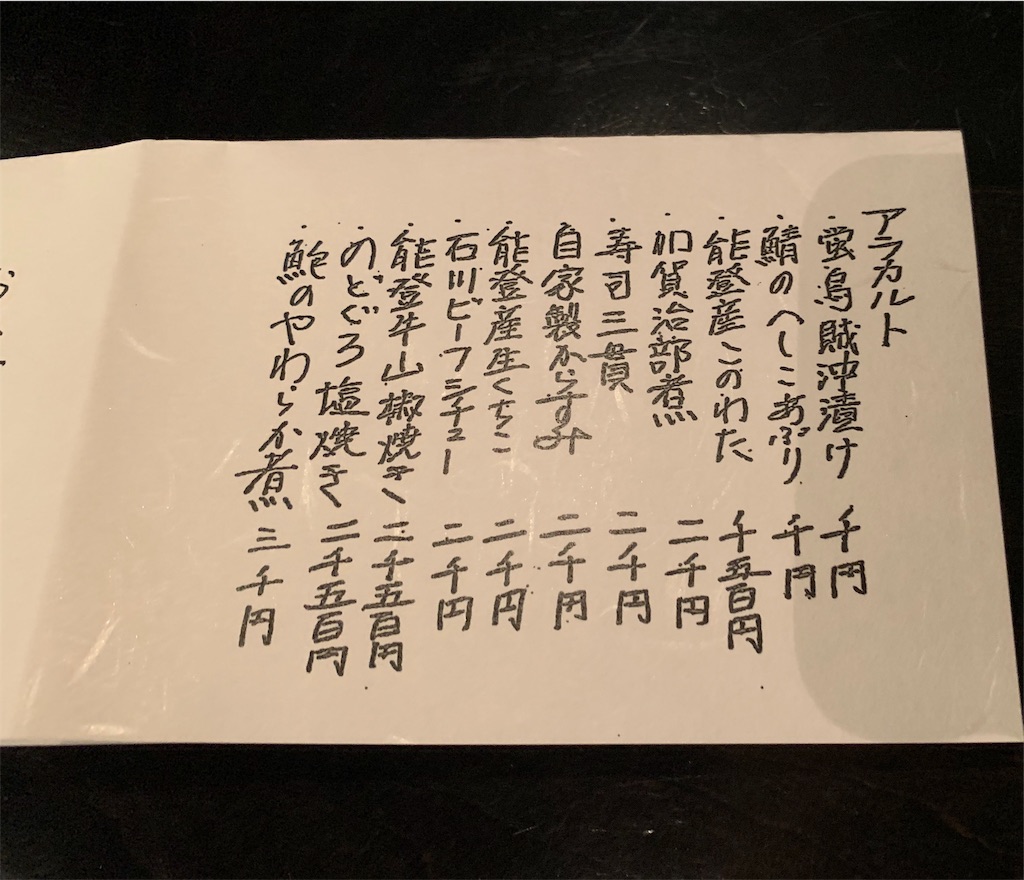 アラカルト
・蛍烏賊沖漬け 千円
・鯖のへしこあぶり 千円
・能登産このわた 千五百円
・加賀治部煮 二千円
・寿司三貫 二千円
・自家製からすみ 二千円
・能登産生くちこ 二千円
・石川ビーフシチュー 二千円
・能登牛山椒焼き 二千五百円
・のどぐろ塩焼き 二千五百円
・鮑のやわらか煮 三千円